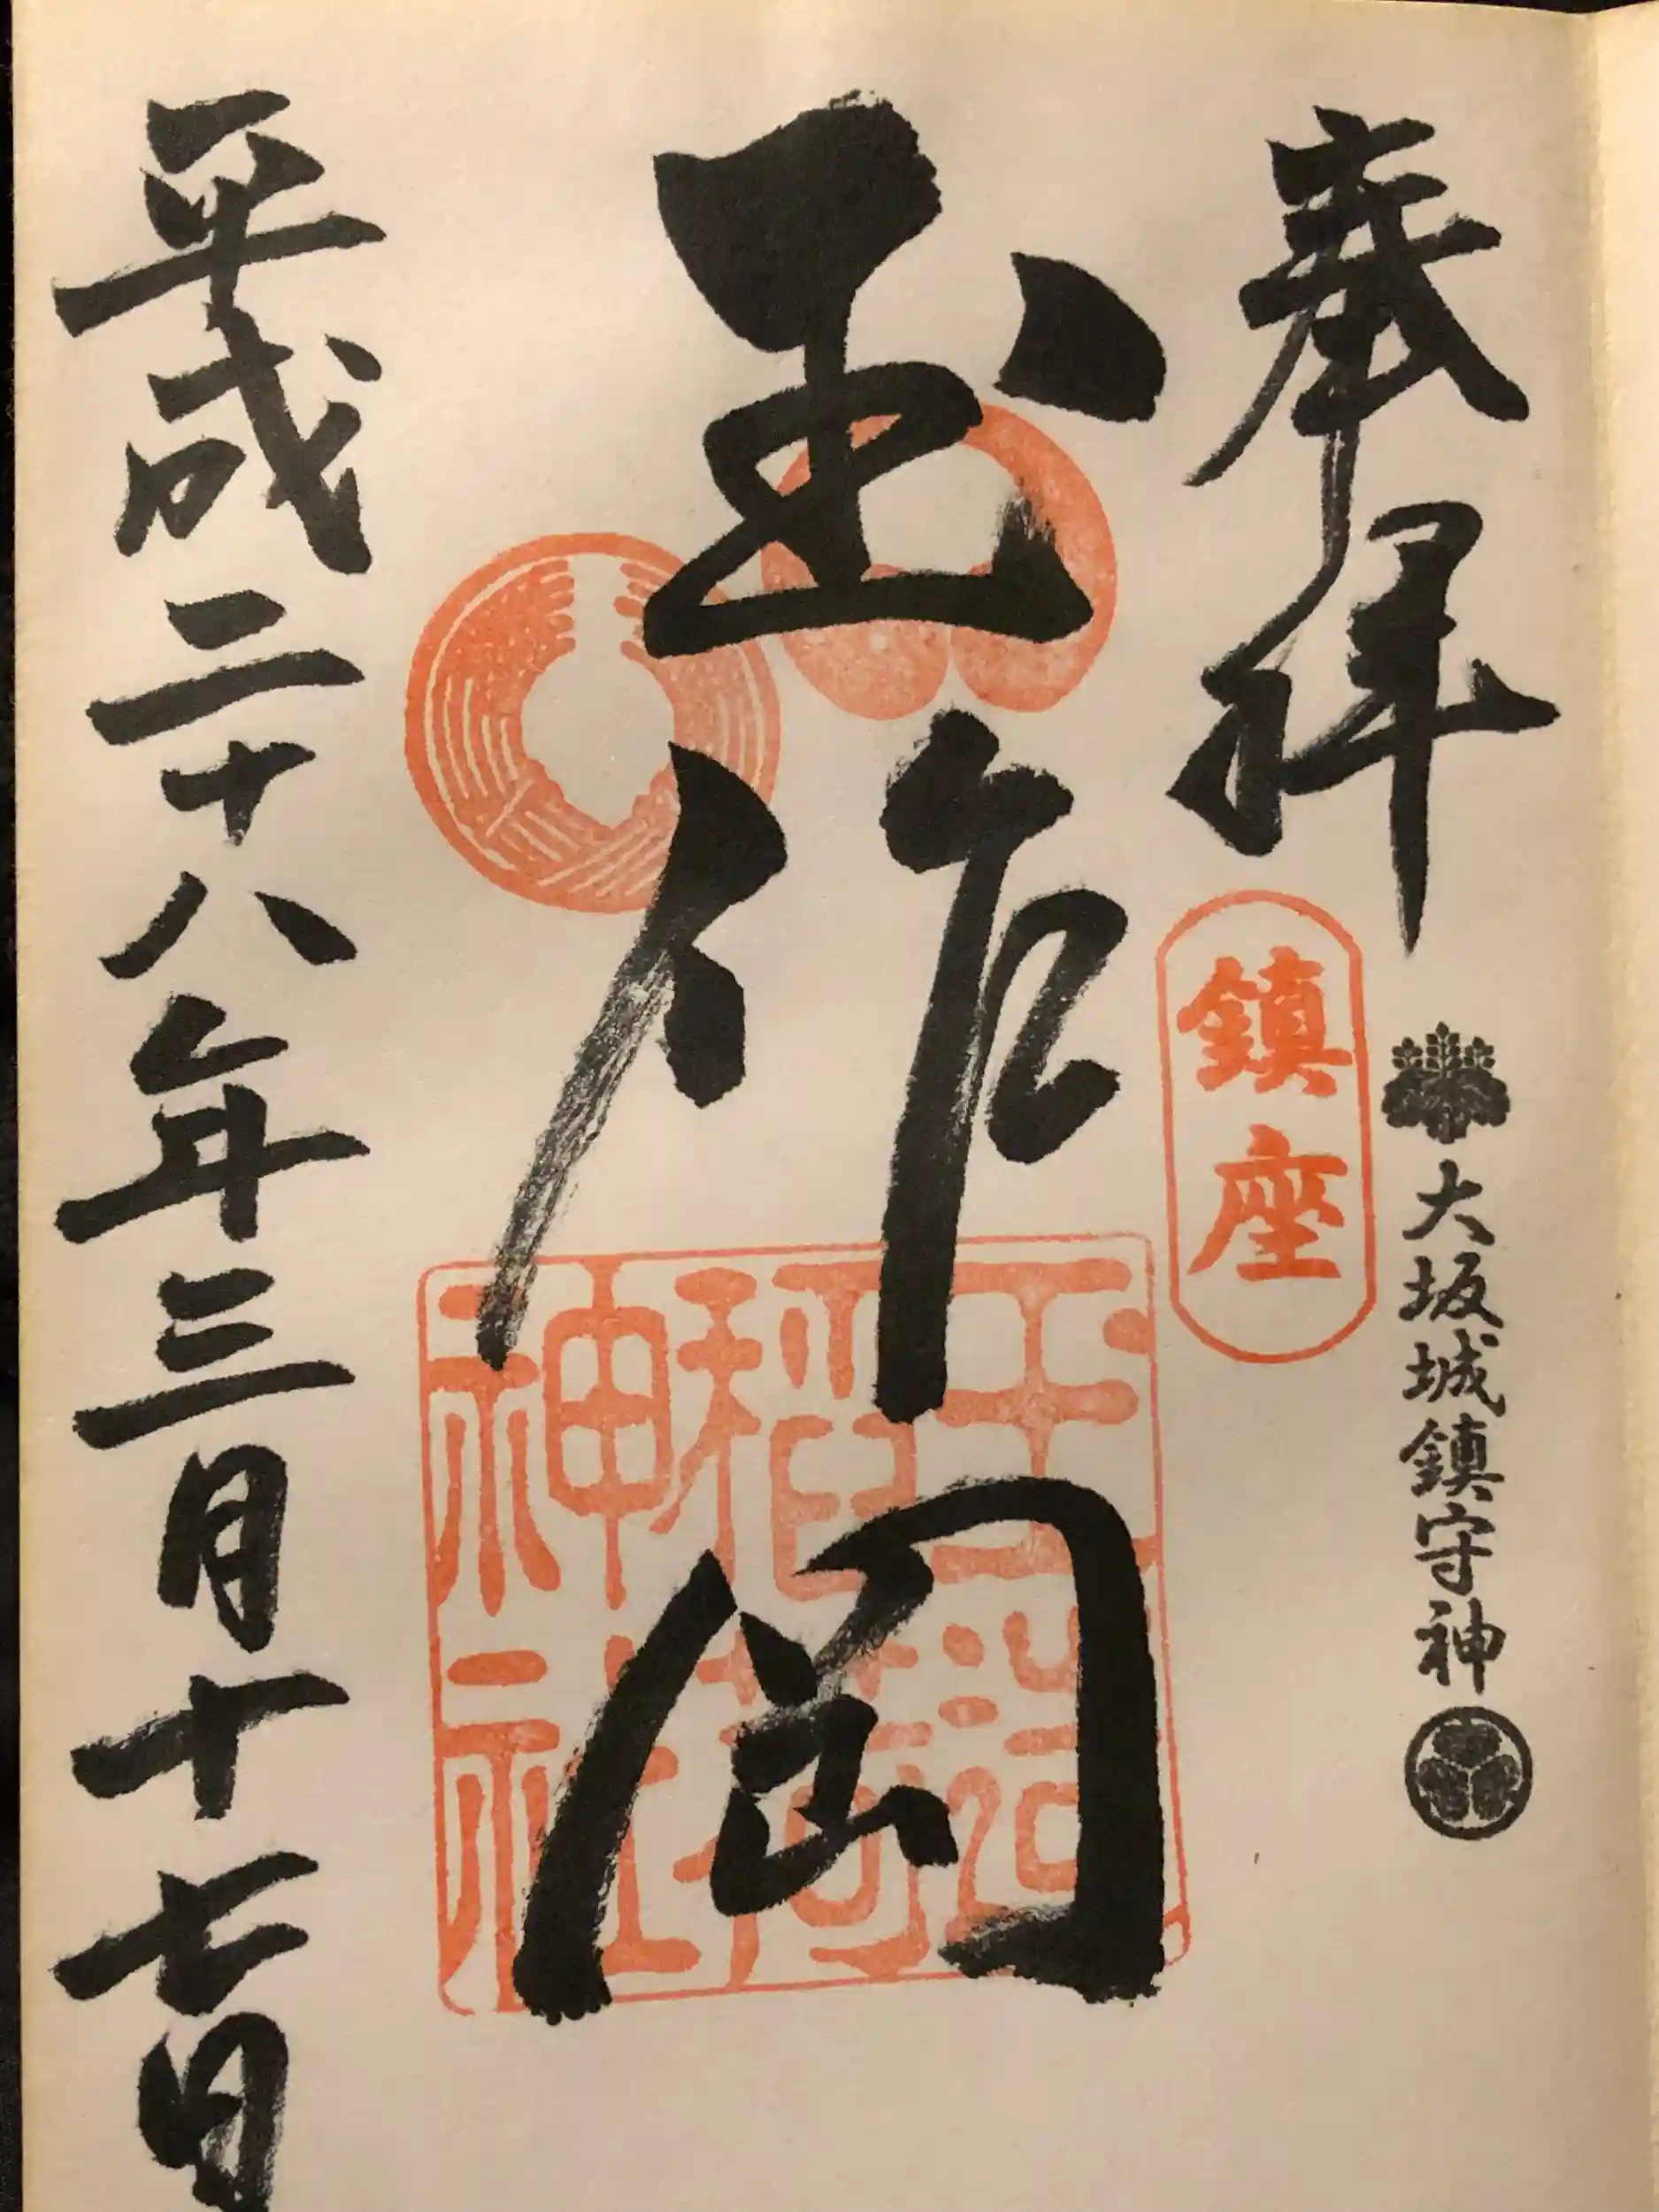 奉拝
鎮座
大坂城鎮守神
玉作岡
玉造
稲荷
神社
平成二十八年三月十七日